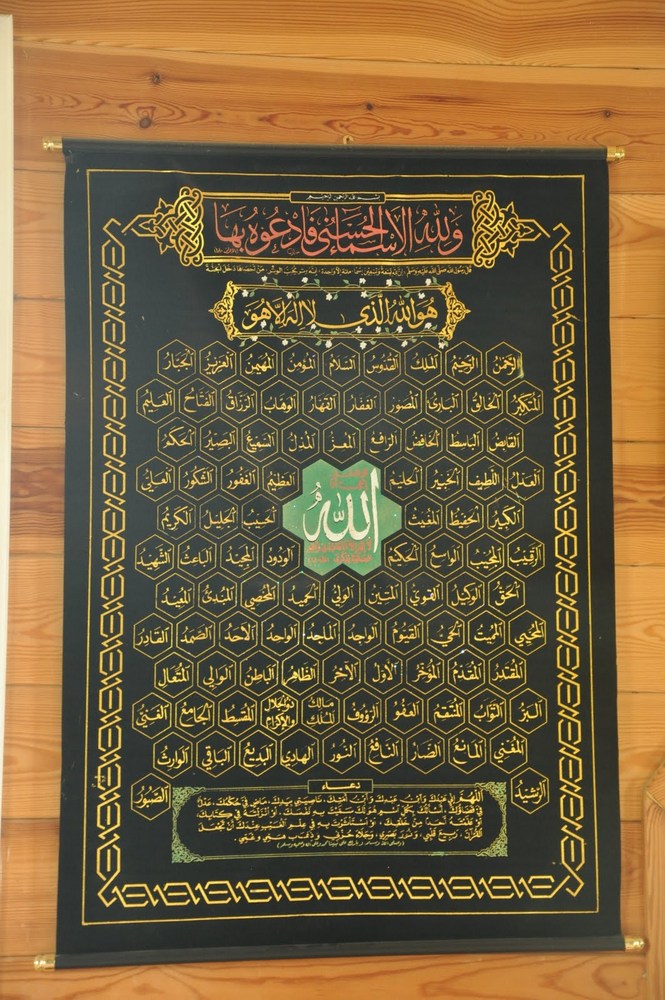 بسم الله الرحمن الرحيم
ولله الأسماء الحسنى فادعوه بها
قال رسول الله صلى الله عليه وسلم
هو الله الذي لا إله إلا هو
الرحمن الرحيم الملك القدوس السلام المؤمن المهيمن العزيز الجبار
المتكبر الخالق البارئ المصور الغفار القهار الوهاب الرزاق الفتاح العليم
القابض الباسط الخافض الرافع المعز المذل السميع البصير الحكم
العدل اللطيف الخبير الحليم العظيم الغفور الشكور العلي
الله
الكبير الحفيظ المغيث الحسيب الجليل الكريم
الرقيب المجيب الواسع الحكيم الودود المجيد الباعث الشهيد
الحق الوكيل القوي المتين الولي الحميد المحصي المبدئ المعيد
المحيي المميت الحي القيوم الواجد الماجد الواحد الأحد الصمد القادر
المقتدر المقدم المؤخر الأول الآخر الظاهر الباطن الوالي المتعال
البر التواب المنتقم العفو الرؤوف مالك الملك ذو الجلال والإكرام المقسط الجامع الغني
المغني المانع الضار النافع النور الهادي البديع الباقي الوارث
الرشيد الصبور
دعاء
اللهم إني عبدك وابن عبدك وابن أمتك، ناصيتي بيدك، ماض في حكمك، عدل
في قضاؤك، أسألك بكل اسم هو لك سميت به نفسك، أو أنزلته في كتابك،
أو علمته أحدا من خلقك، أو استأثرت به في علم الغيب عندك أن تجعل
القرآن ربيع قلبي، ونور بصري، وجلاء حزني، وذهاب همي